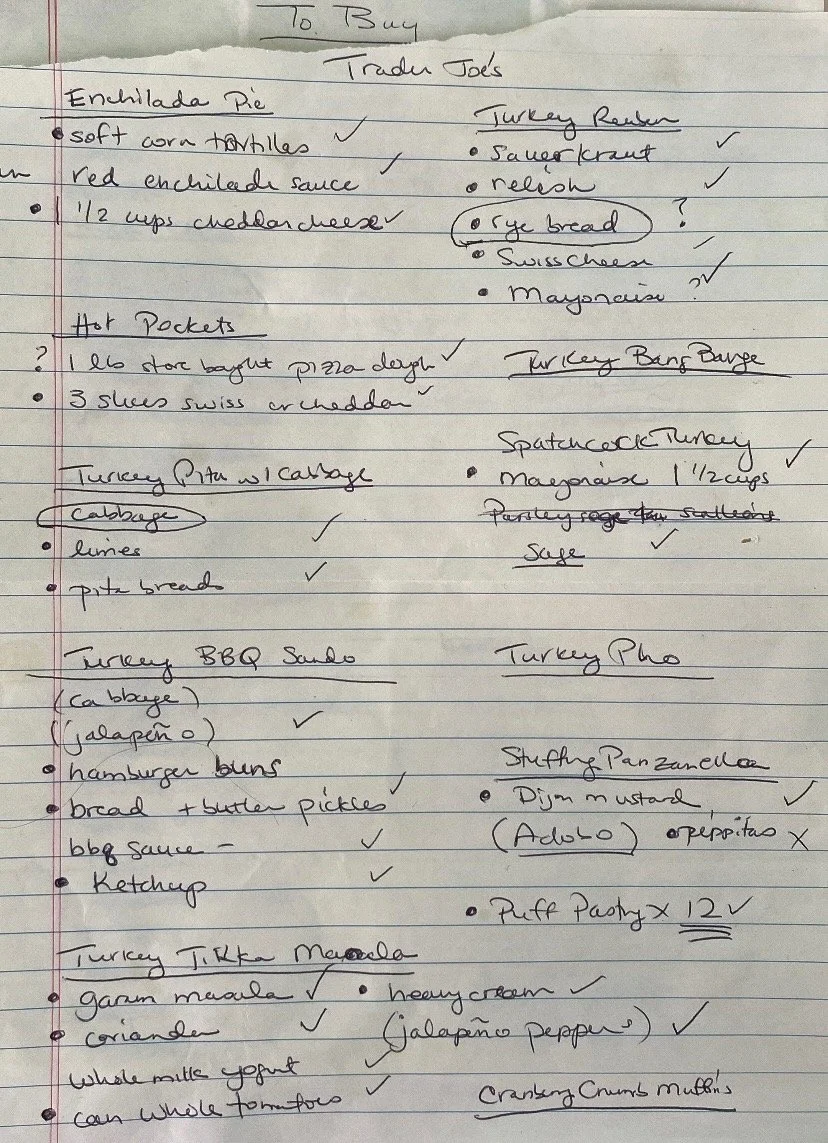 To Buy
Trader Joe's
Enchilada Pie
• soft corn tortillas ✓
red enchilada sauce ✓
• 1 1/2 cups cheddar cheese ✓
Hot Pockets
? 1 lb store bought pizza dough ✓
• 3 slices swiss or cheddar ✓
Turkey Pita w/ Cabbage
cabbage
• limes ✓
• pita breads ✓
Turkey BBQ Sando
(cabbage)
(jalapeño) ✓
• hamburger buns
• bread + butter pickles ✓
bbq sauce – ✓
• Ketchup ✓
Turkey Tikka Masala
• garam masala ✓
• coriander ✓
whole milk yogurt ✓
• can whole tomatoes ✓
• heavy cream ✓
(jalapeño peppers) ✓
Turkey Reuben
• sauerkraut ✓
• relish ✓
• rye bread ?
• Swiss cheese
• Mayonaise ? ✓
Turkey Bang Bange
Spatchcock Turkey
• Mayonaise 1 1/2 cups ✓
Parsley sage scallions
Sage ✓
Turkey Pho
Stuffing Panzanella
• Dijon mustard ✓
(Adobo) • peppitas X
• Puff Pastry x 12 ✓
Cranberry Crumb Muffins